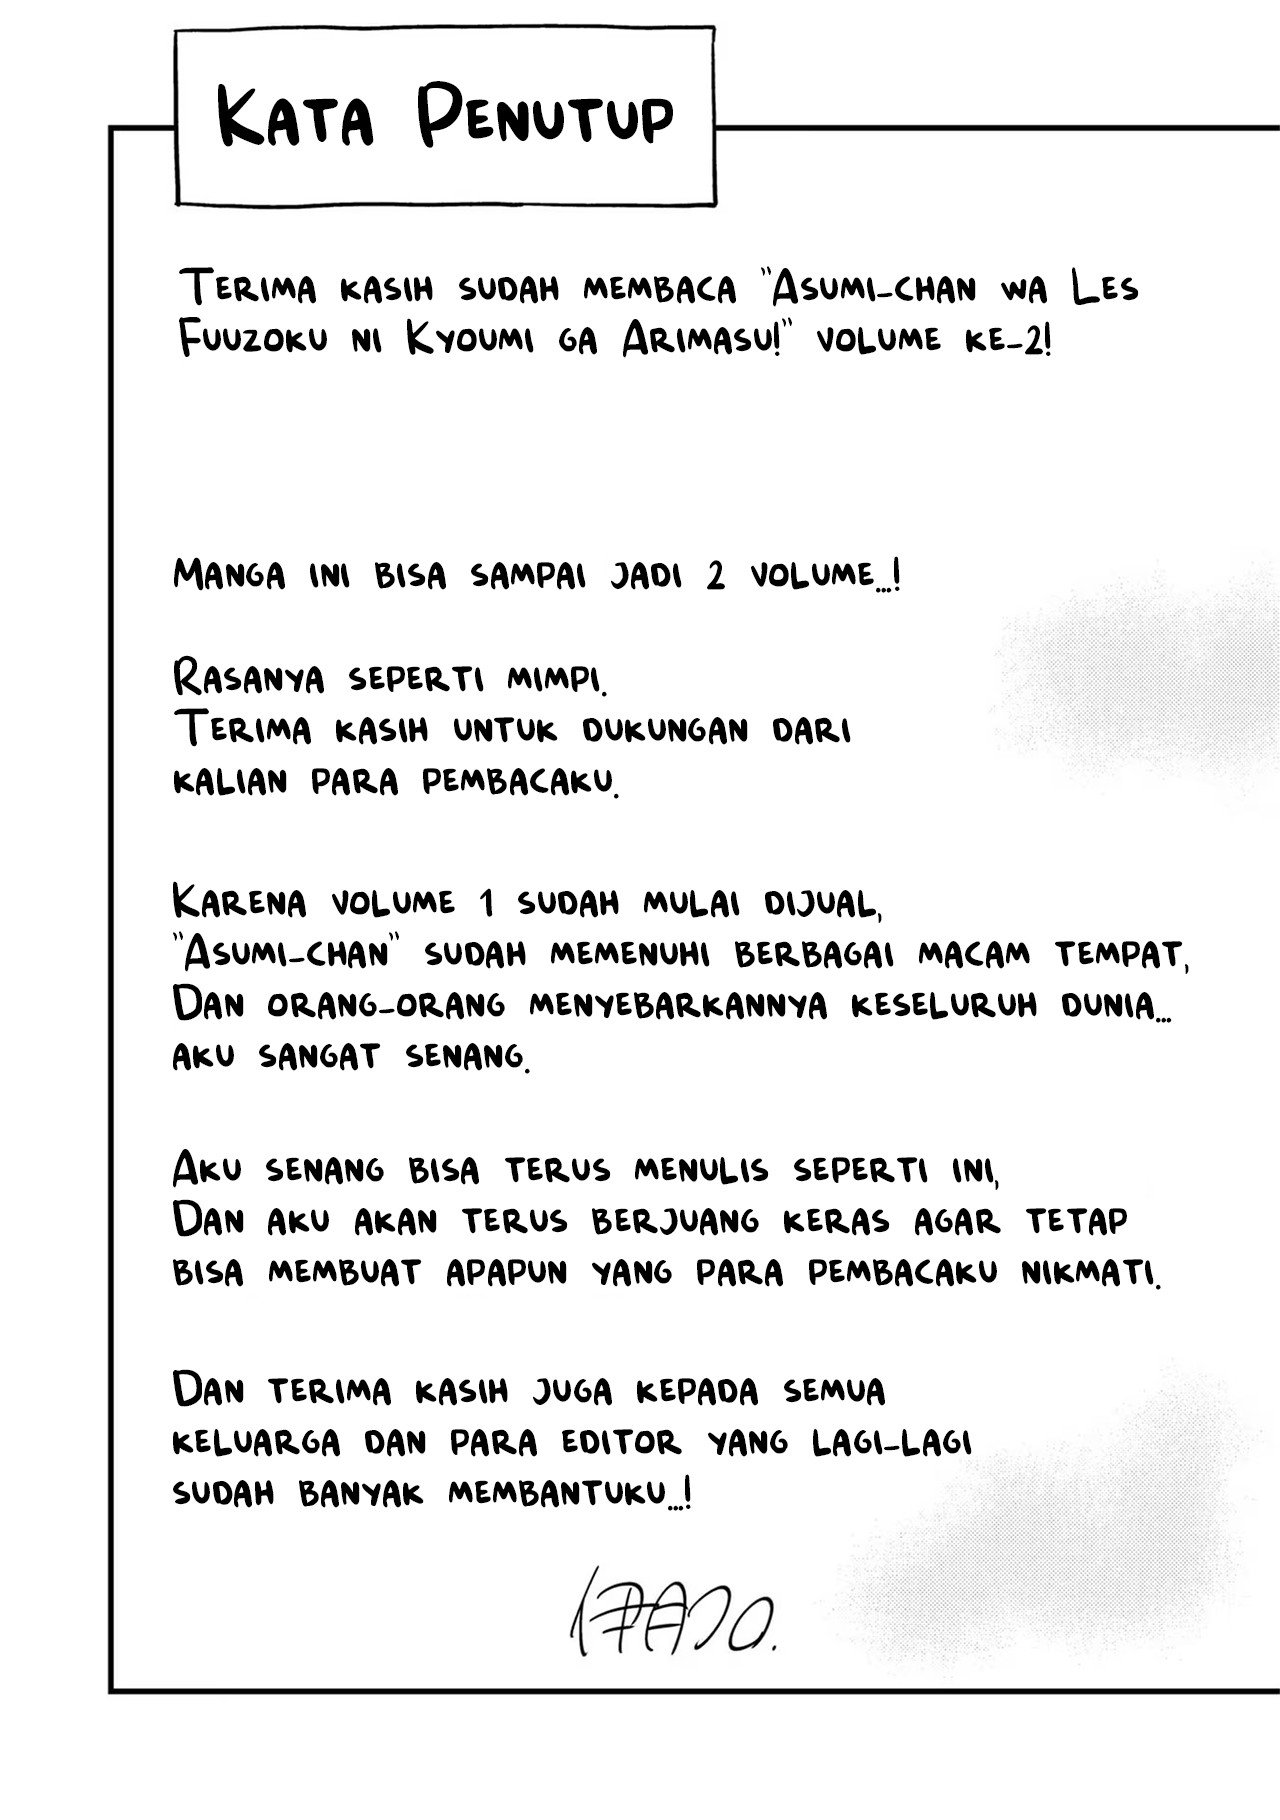 Kata Penutup
Terima kasih sudah membaca "Asumi-chan wa Les
Fuuzoku ni Kyoumi ga Arimasu!" volume ke-2!
Manga ini bisa sampai jadi 2 volume...!
Rasanya seperti mimpi.
Terima kasih untuk dukungan dari
kalian para pembacaku.
Karena volume 1 sudah mulai dijual,
"Asumi-chan" sudah memenuhi berbagai macam tempat,
Dan orang-orang menyebarkannya keseluruh dunia...
aku sangat senang.
Aku senang bisa terus menulis seperti ini,
Dan aku akan terus berjuang keras agar tetap
bisa membuat apapun yang para pembacaku nikmati.
Dan terima kasih juga kepada semua
keluarga dan para editor yang lagi-lagi
sudah banyak membantuku...!